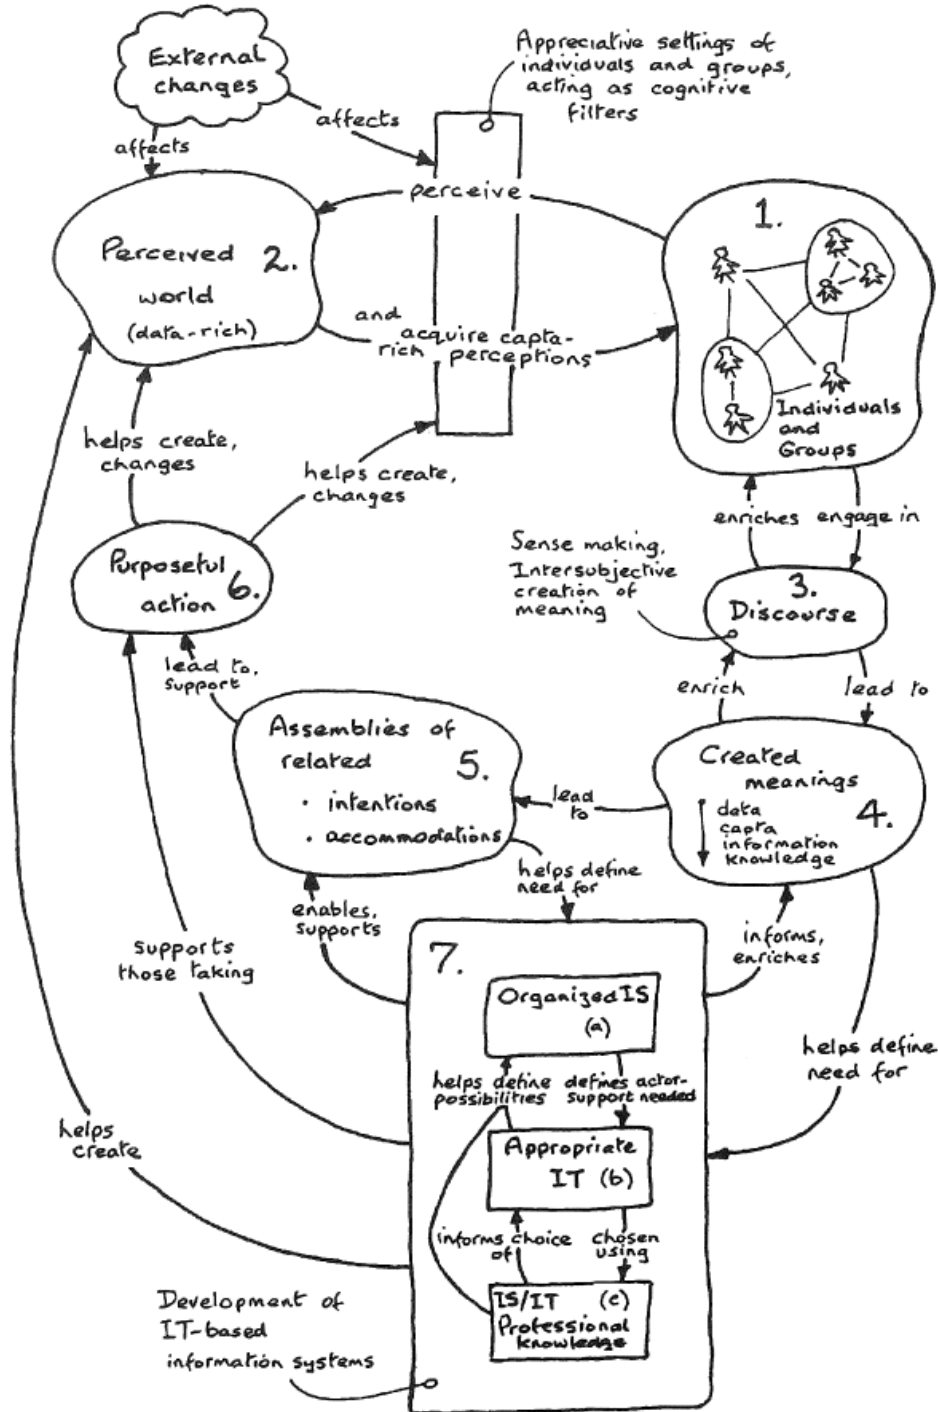 External
changes
Appreciative settings of
individuals and groups,
acting as cognitive
filters
affects
affects
perceive
1.
Perceived 2.
world
(data-rich)
and
acquire capta-
rich perceptions
Individuals
and
Groups
helps create,
changes
helps create,
changes
enriches engage in
Sense making,
Intersubjective
creation of
meaning
Purposeful
action 6.
3.
Discourse
lead to,
support
enrich
lead to
Assemblies of
related 5.
· intentions
· accommodations
lead
to
Created
meanings
4.
data
capta
information
knowledge
helps define
need for
enables,
supports
informs,
enriches
supports
those taking
7.
Organized IS
(a)
helps define
need for
helps define
possibilities
defines actor-
support needed
helps
create
Appropriate
IT (b)
informs choice
of
chosen
using
IS/IT (c)
Professional
knowledge
Development of
IT-based
information systems